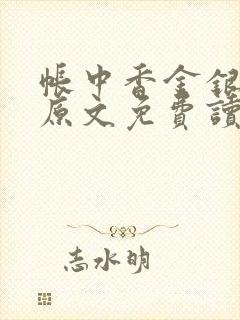 帳中香金銀
原文免費讀
志水明